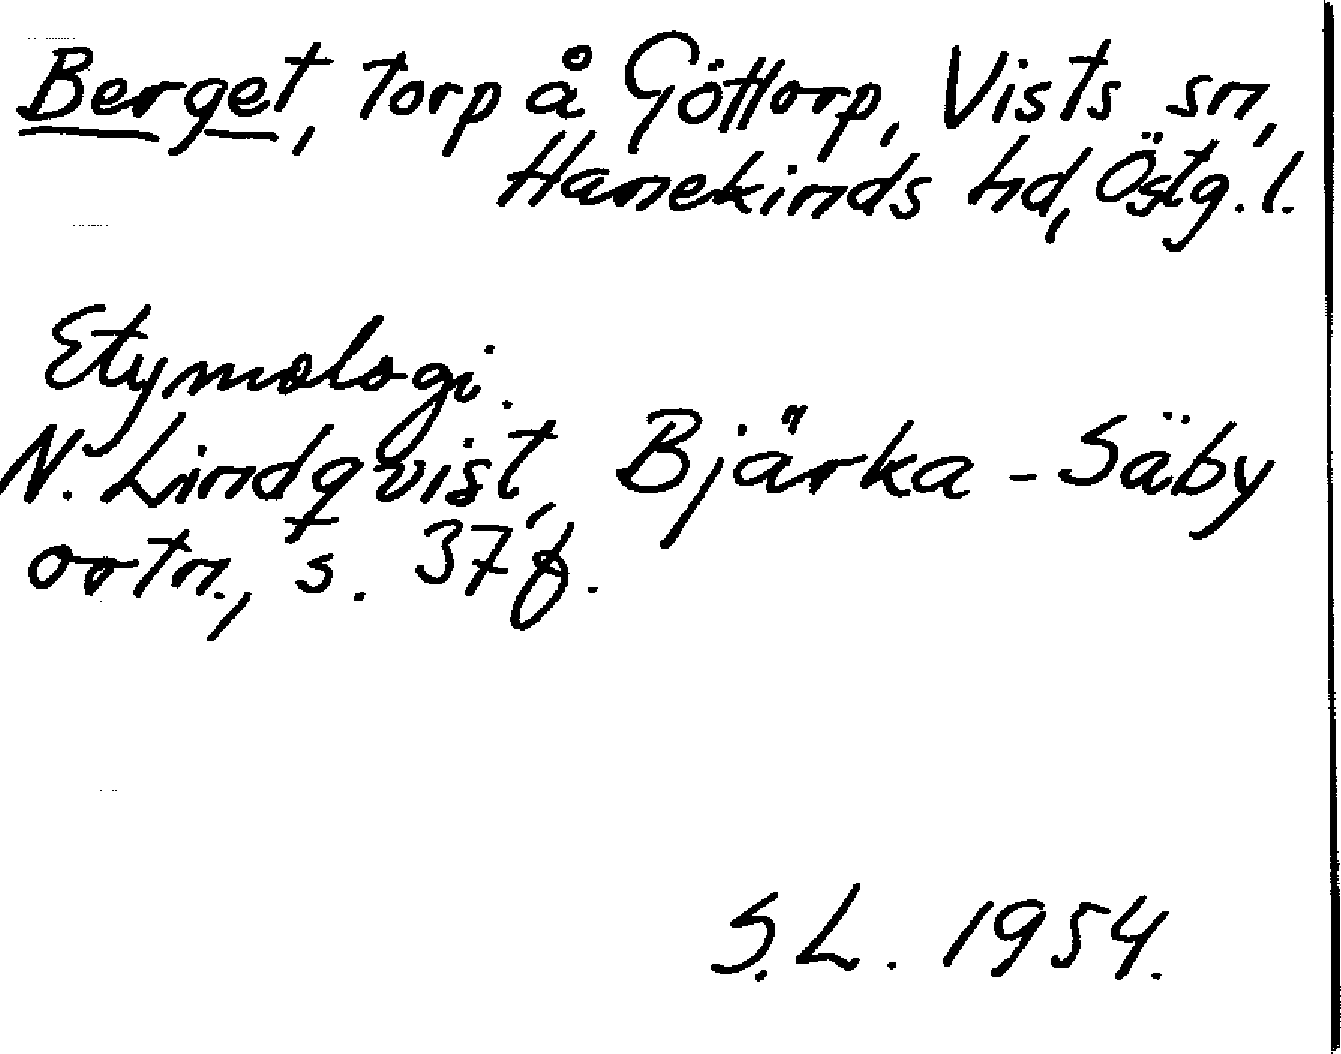 Berget, torp å Göttorp, Vists sn,
Hanekinds hd, Östg.l.
Etymologi.
N. Lindqvist, Bjärka-Säby
ortn., s. 37 f.
S.L. 1954.